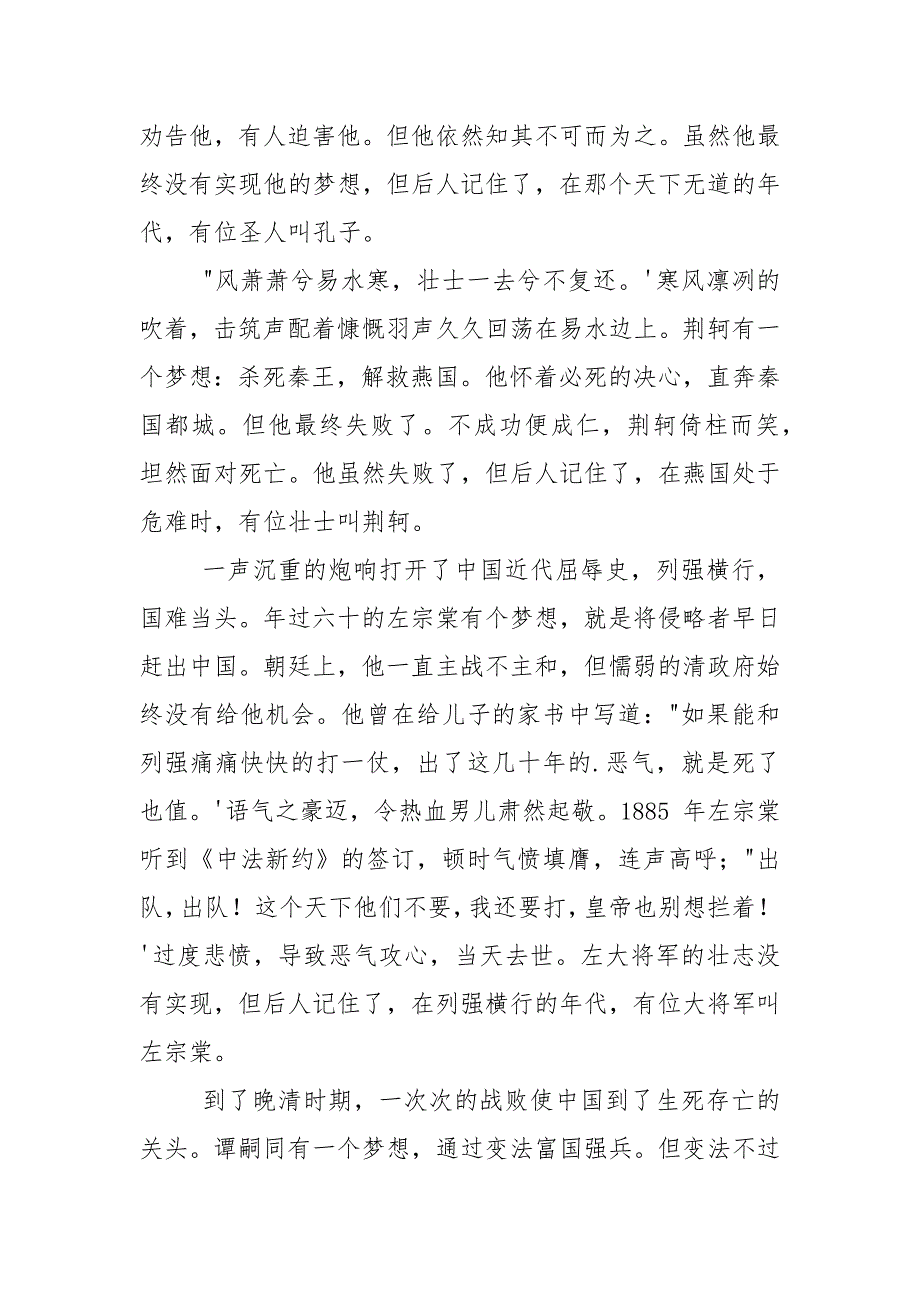 劝告他，有人迫害他。但他依然知其不可而为之。虽然他最
终没有实现他的梦想，但后人记住了，在那个天下无道的年
代，有位圣人叫孔子。
"风萧萧兮易水寒，壮士一去兮不复还。'寒风凛冽的
吹着，击筑声配着慷慨羽声久久回荡在易水边上。荆轲有一
个梦想：杀死秦王，解救燕国。他怀着必死的决心，直奔秦
国都城。但他最终失败了。不成功便成仁，荆轲倚柱而笑，
坦然面对死亡。他虽然失败了，但后人记住了，在燕国处于
危难时，有位壮士叫荆轲。
一声沉重的炮响打开了中国近代屈辱史，列强横行，
国难当头。年过六十的左宗棠有个梦想，就是将侵略者早日
赶出中国。朝廷上，他一直主战不主和，但懦弱的清政府始
终没有给他机会。他曾在给儿子的家书中写道："如果能和
列强痛痛快快的打一仗，出了这几十年的.恶气，就是死了
也值。'语气之豪迈，令热血男儿肃然起敬。1885 年左宗棠
听到《中法新约》的签订，顿时气愤填膺，连声高呼；"出
队,出队！这个天下他们不要,我还要打,皇帝也别想拦着！
'过度悲愤，导致恶气攻心，当天去世。左大将军的壮志没
有实现，但后人记住了，在列强横行的年代，有位大将军叫
左宗棠。
到了晚清时期，一次次的战败使中国到了生死存亡的
关头。谭嗣同有一个梦想，通过变法富国强兵。但变法不过